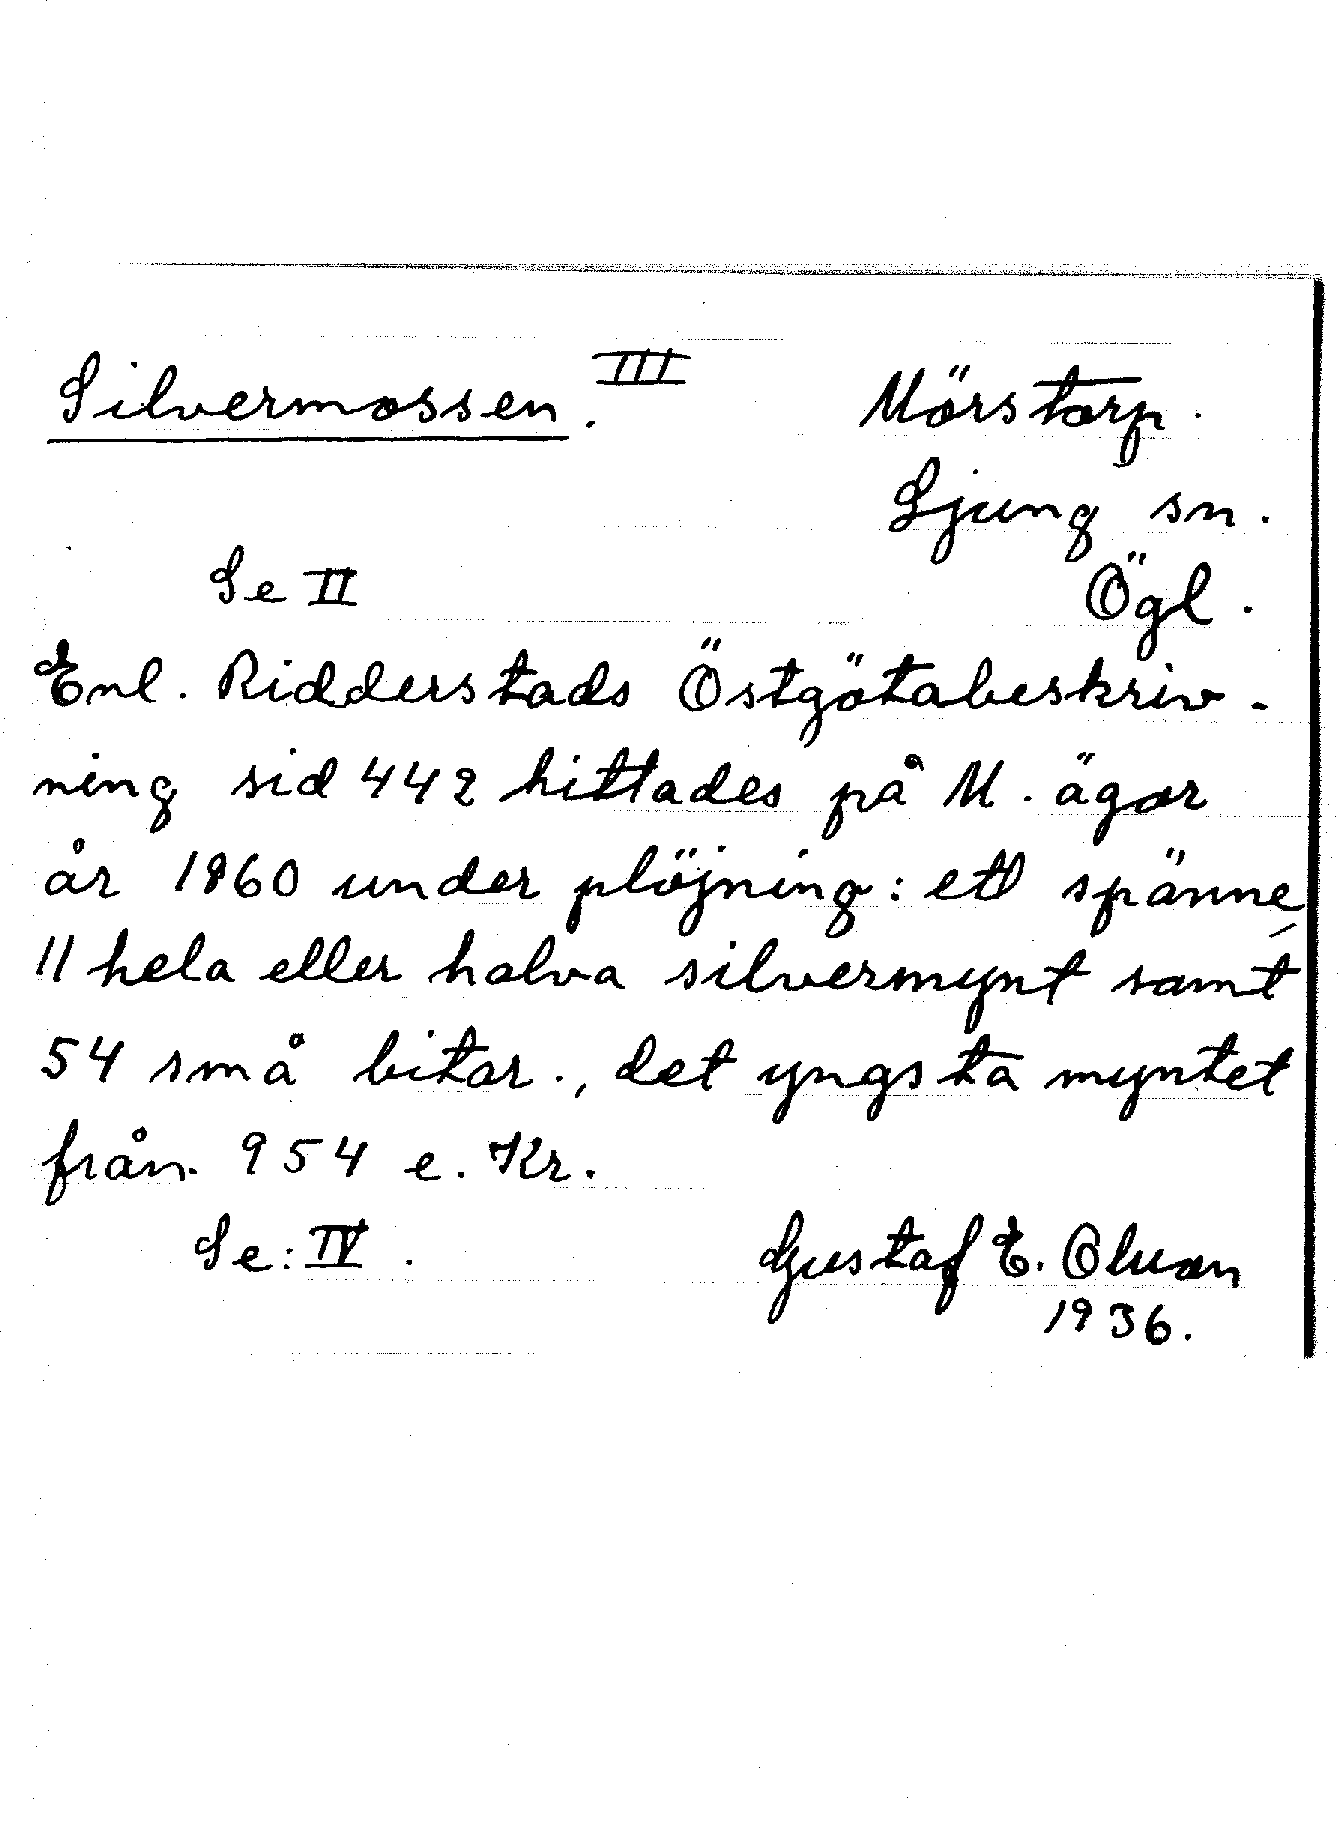 Silvermossen. III
Mörstorp.
Ljung sn.
Se II
Ögl.
Enl. Ridderstads Östgötabeskriv-
ning sid 442 hittades på M. ägor
år 1860 under plöjning: ett spänne,
11 hela eller halva silvermynt samt
54 små bitar., det yngsta myntet
från 954 e. Kr.
Se: IV.
Gustaf E.
1936.